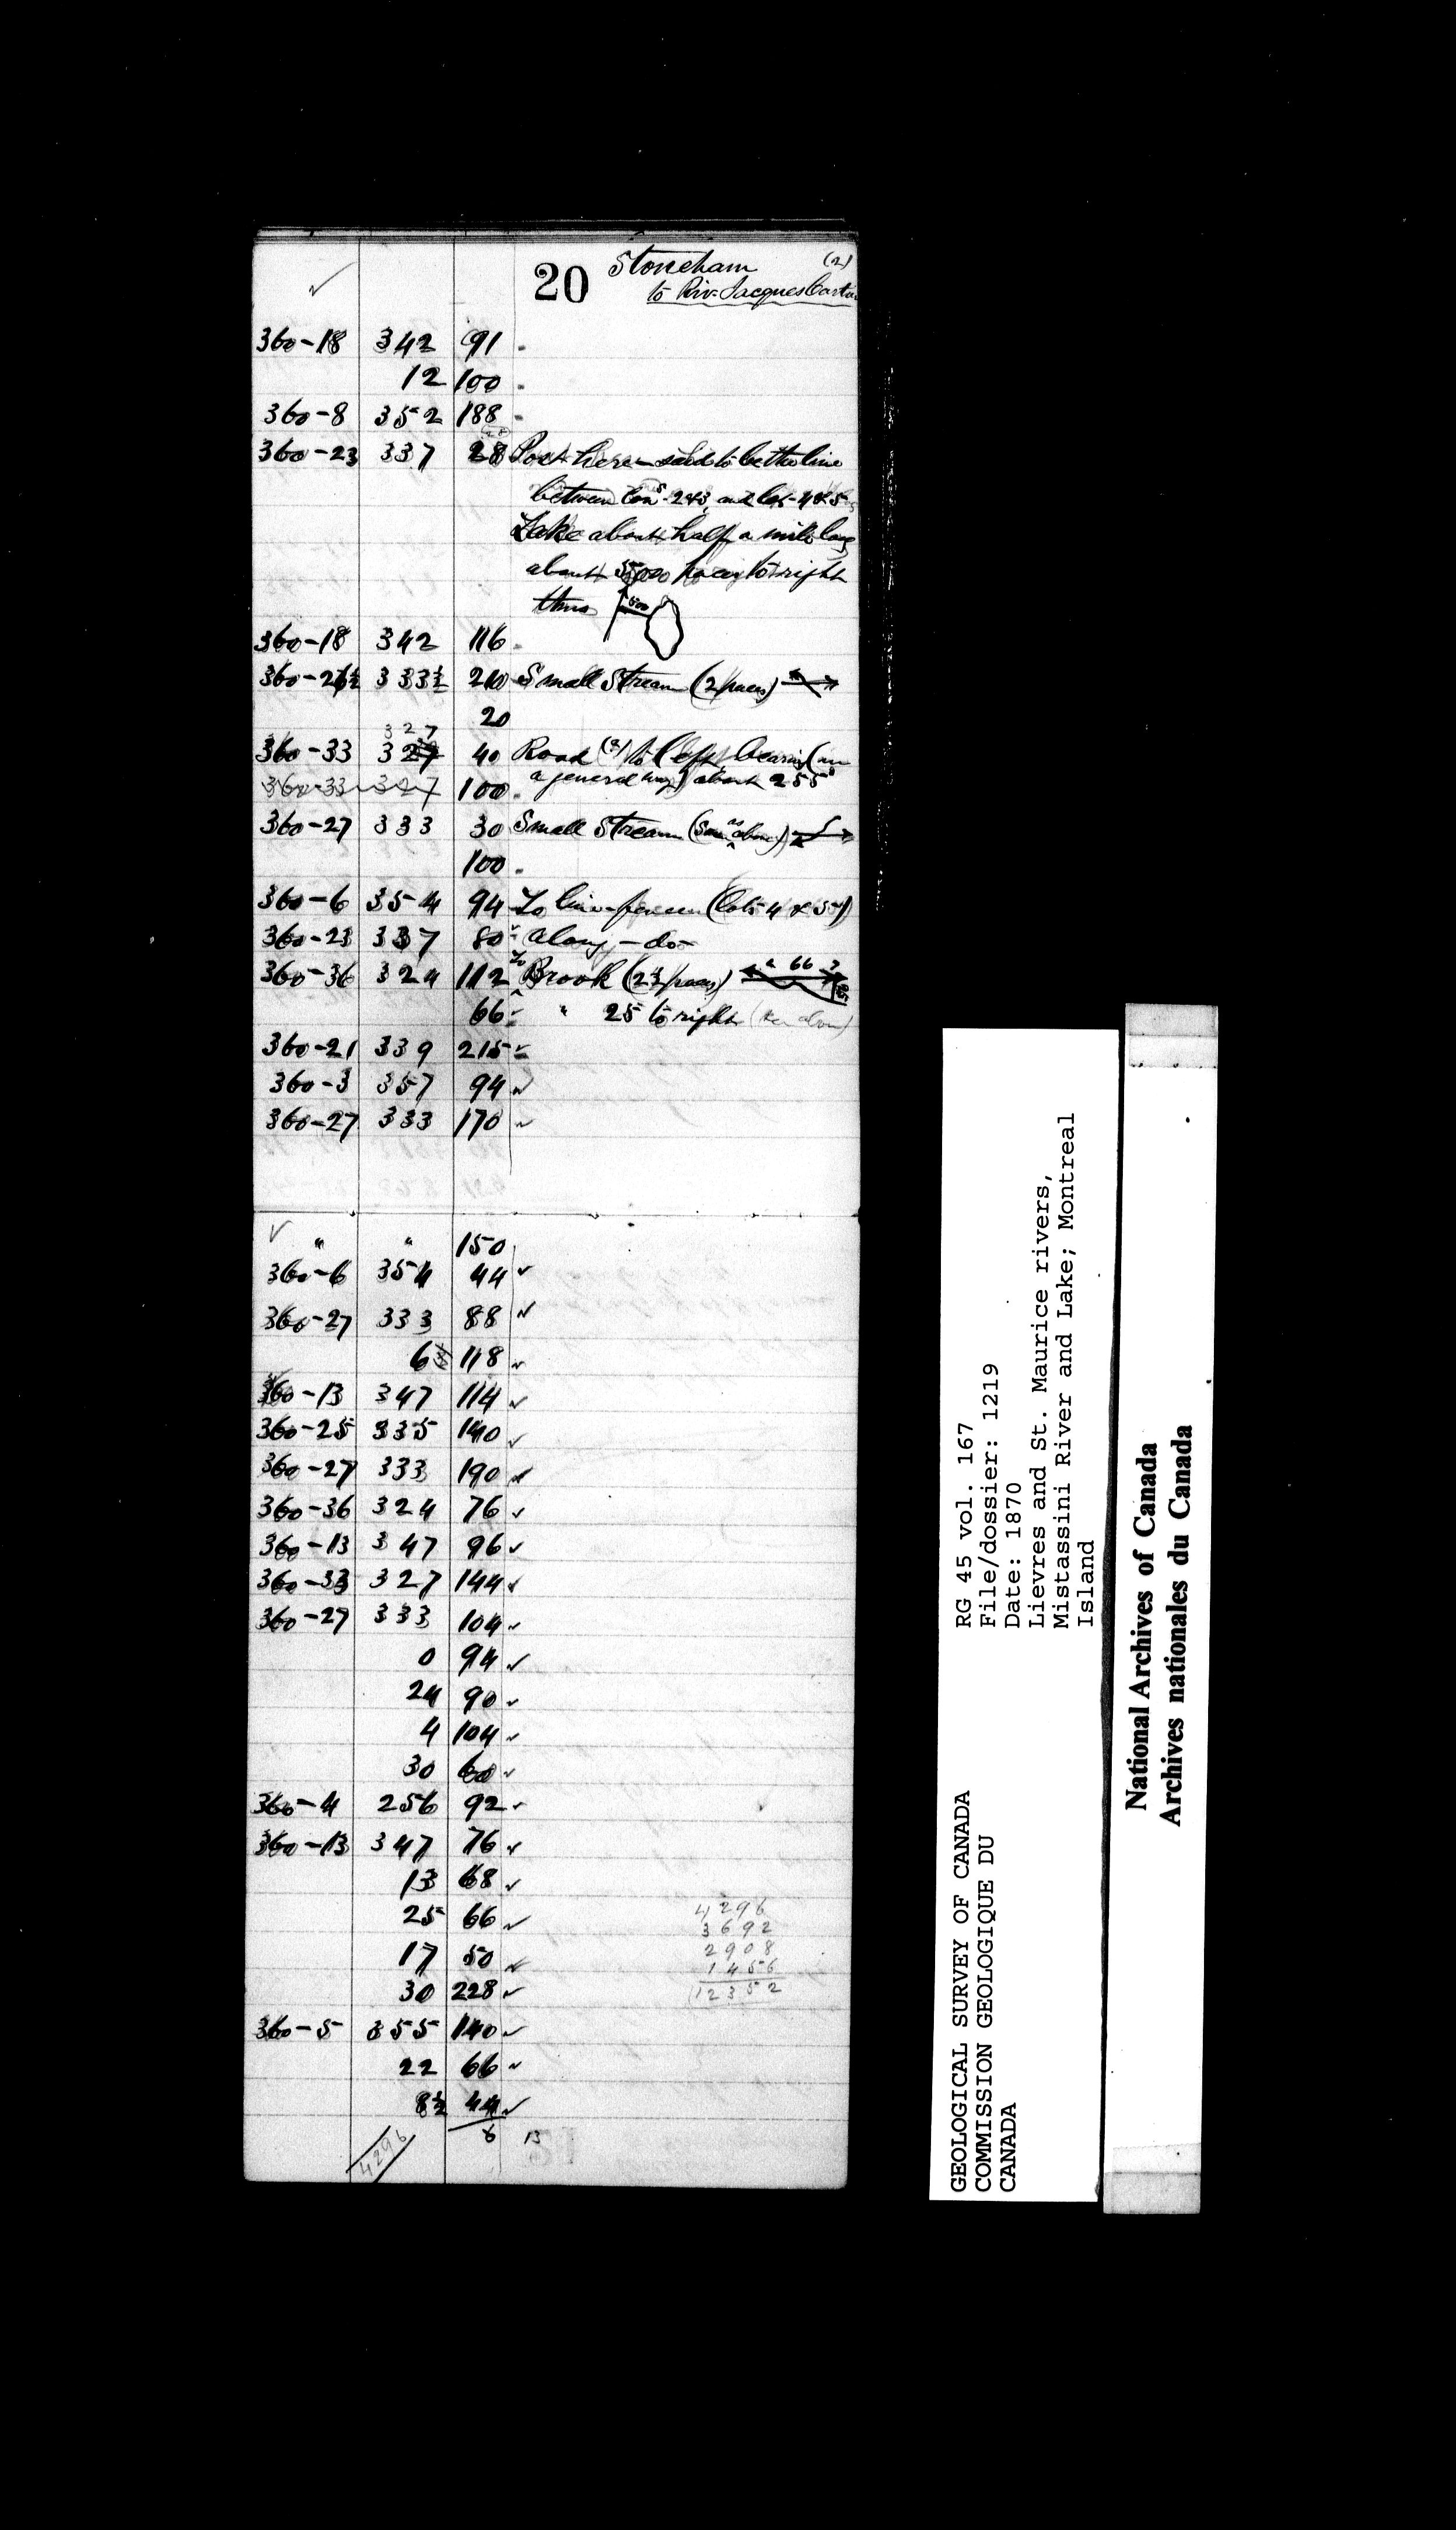 20 Stoneham (2)
to Riv. Jacques Cartier
360-18 342 91
12 100
360-8 352 188
360-23 337 28 Post here said to be the line
between Cons 2&3, and lots 4 & 5
Lake about half a mile long
about 500 paces to right
thus 500
360-18 342 116
360-26½ 333½ 210 Small Stream (2 paces)
20
327
360-33 327 40 Road (?) to left, bearing (in
a general way) about 255°
360-33 327 100
360-27 333 30 Small Stream (same as above)
100
360-6 354 94 To line-fence (lots 4 & 5)
360-23 337 80 Along - do -
360-36 324 112 To Brook (2½ paces) 66
66 " 25 to right (see above)
360-21 339 215
360-3 357 94
360-27 333 170
" " 150
360-6 354 44
360-27 333 88
6 118
360-13 347 114
360-25 335 140
360-27 333 190
360-36 324 76
360-13 347 96
360-33 327 144
360-27 333 104
0 94
24 90
4 104
30 60
360-4 256 92
360-13 347 76
13 68
25 66
17 50
30 228
360-5 355 140
22 66
8½ 44
6 13
4296
4296
3692
2908
1456
12352
GEOLOGICAL SURVEY OF CANADA
COMMISSION GEOLOGIQUE DU
CANADA
RG 45 vol. 167
File/dossier: 1219
Date: 1870
Lievres and St. Maurice rivers,
Mistassini River and Lake; Montreal
Island
National Archives of Canada
Archives nationales du Canada